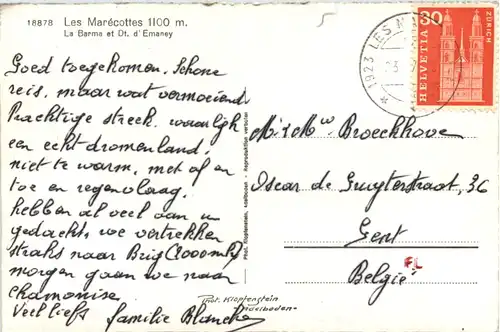 18878 Les Marécottes 1100 m.
La Barma et Dt. d'Emaney
Goed toegekomen. Schone
reis, maar wat vermoeiend
Prachtige streek. waarlijk
een echt dromenland.
niet te warm, met af en
toe en regenvlaag.
hebben al veel aan u
gedacht, we vertrekken
straks naar Brig (2000m)
morgen gaan we naar
chamonise
Veel liefs familie
Phot. Klopfenstein, Adelboden - Reproduktion verboten
Phot. Klopfenstein
Adelboden
1923 LES MA
HELVETIA 30 ZÜRICH
M. & Mw Broeckhove
Oscar de Gruyterstraat, 36
Gent
België